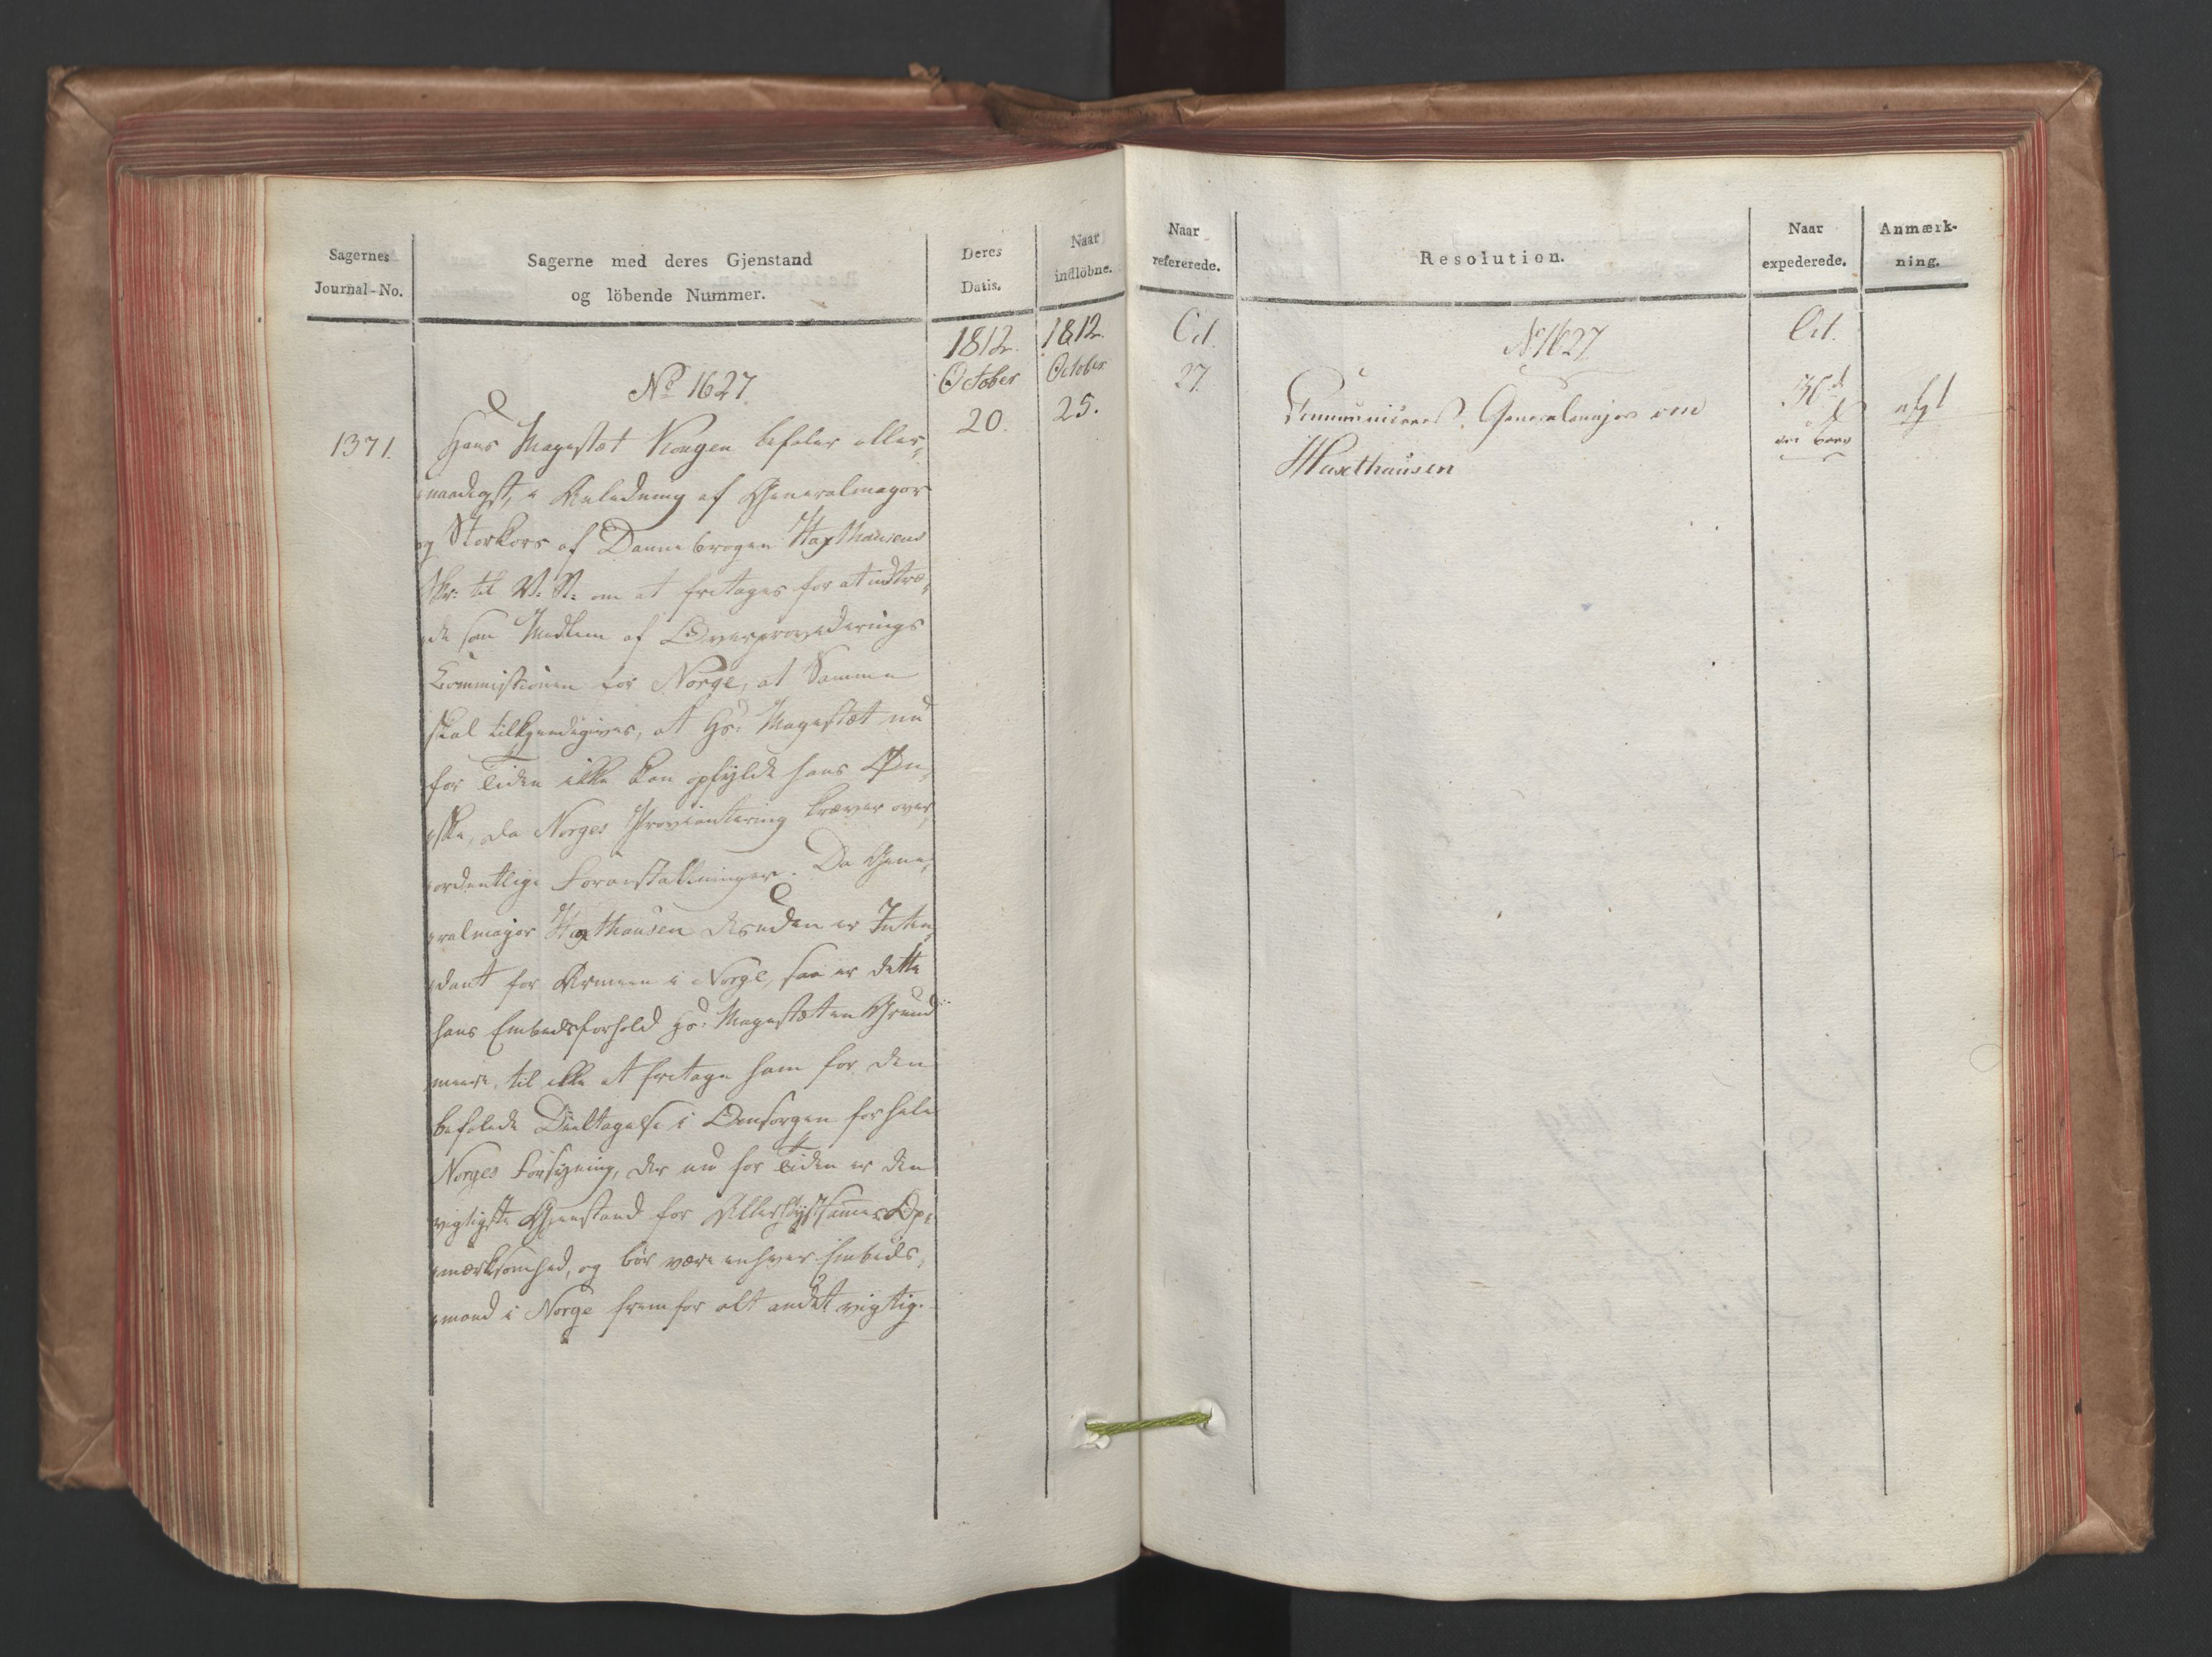 Sagernes
Journal-No.
Sagerne med deres Gjenstand
og löbende Nummer.
Deres
Datis.
Naar
indlöbne.
1812. 1812.
October October
20. 25.
No 1627.
1371. Hans Majestæt Kongen befaler aller-
naadigst, i Anledning af Generalmajor
og Storkors af Dannebrogen Haxthausens
Skr: til V. St: om at fritages for at indtræ-
de som Medlem af Overproviderings
Commissionen for Norge, at Samme
skal tilkjendegives, at Hs: Majestæt nu
for Tiden ikke kan opfylde hans Øn-
ske, da Norges Proviantering kræver over-
ordentlige Foranstaltninger. Da Gene-
ralmajor Haxthausen desuden er Inten-
dant for Armeen i Norge, saa er dette
hans Embedsforhold Hs: Majestæt en Grund
meere, til ikke at fritage ham for den
befalede Deeltagelse i Omsorgen for hele
Norges Forsyning, der nu for Tiden er den
vigtigste Gjenstand for Allerhøistsammes Op-
mærksomhed, og bör være enhver Embeds-
mand i Norge fremfor alt andet vigtig.
Naar
refererede.
Resolution.
Naar
expederede.
Anmærk-
ning.
Oct.
27.
No 1627.
Communiceres Generalmajor
Haxthausen
Oct.
30d
afgl